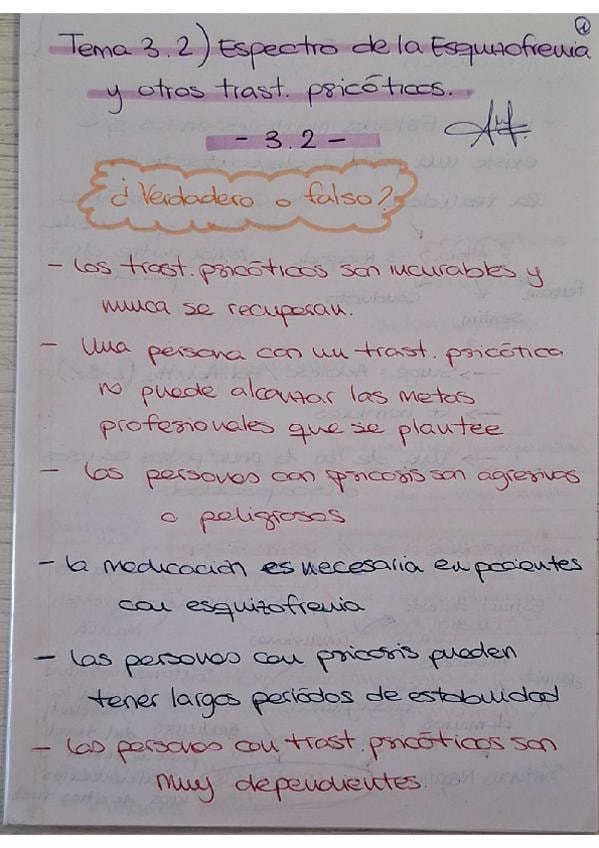 1
Tema 3.2) Espectro de la Esquizofrenia
y otros trast. psicóticos.
- 3.2 -
¿Verdadero o falso?
- Los trast. psicóticos son incurables y
nunca se recuperan.
- Una persona con un trast. psicótico
no puede alcanzar las metas
profesionales que se plantee
- Las personas con psicosis son agresivas
o peligrosas
- La medicación es necesaria en pacientes
con esquizofrenia
- Las personas con psicosis pueden
tener largos períodos de estabilidad
- Las personas con trast. psicóticos son
muy dependientes.